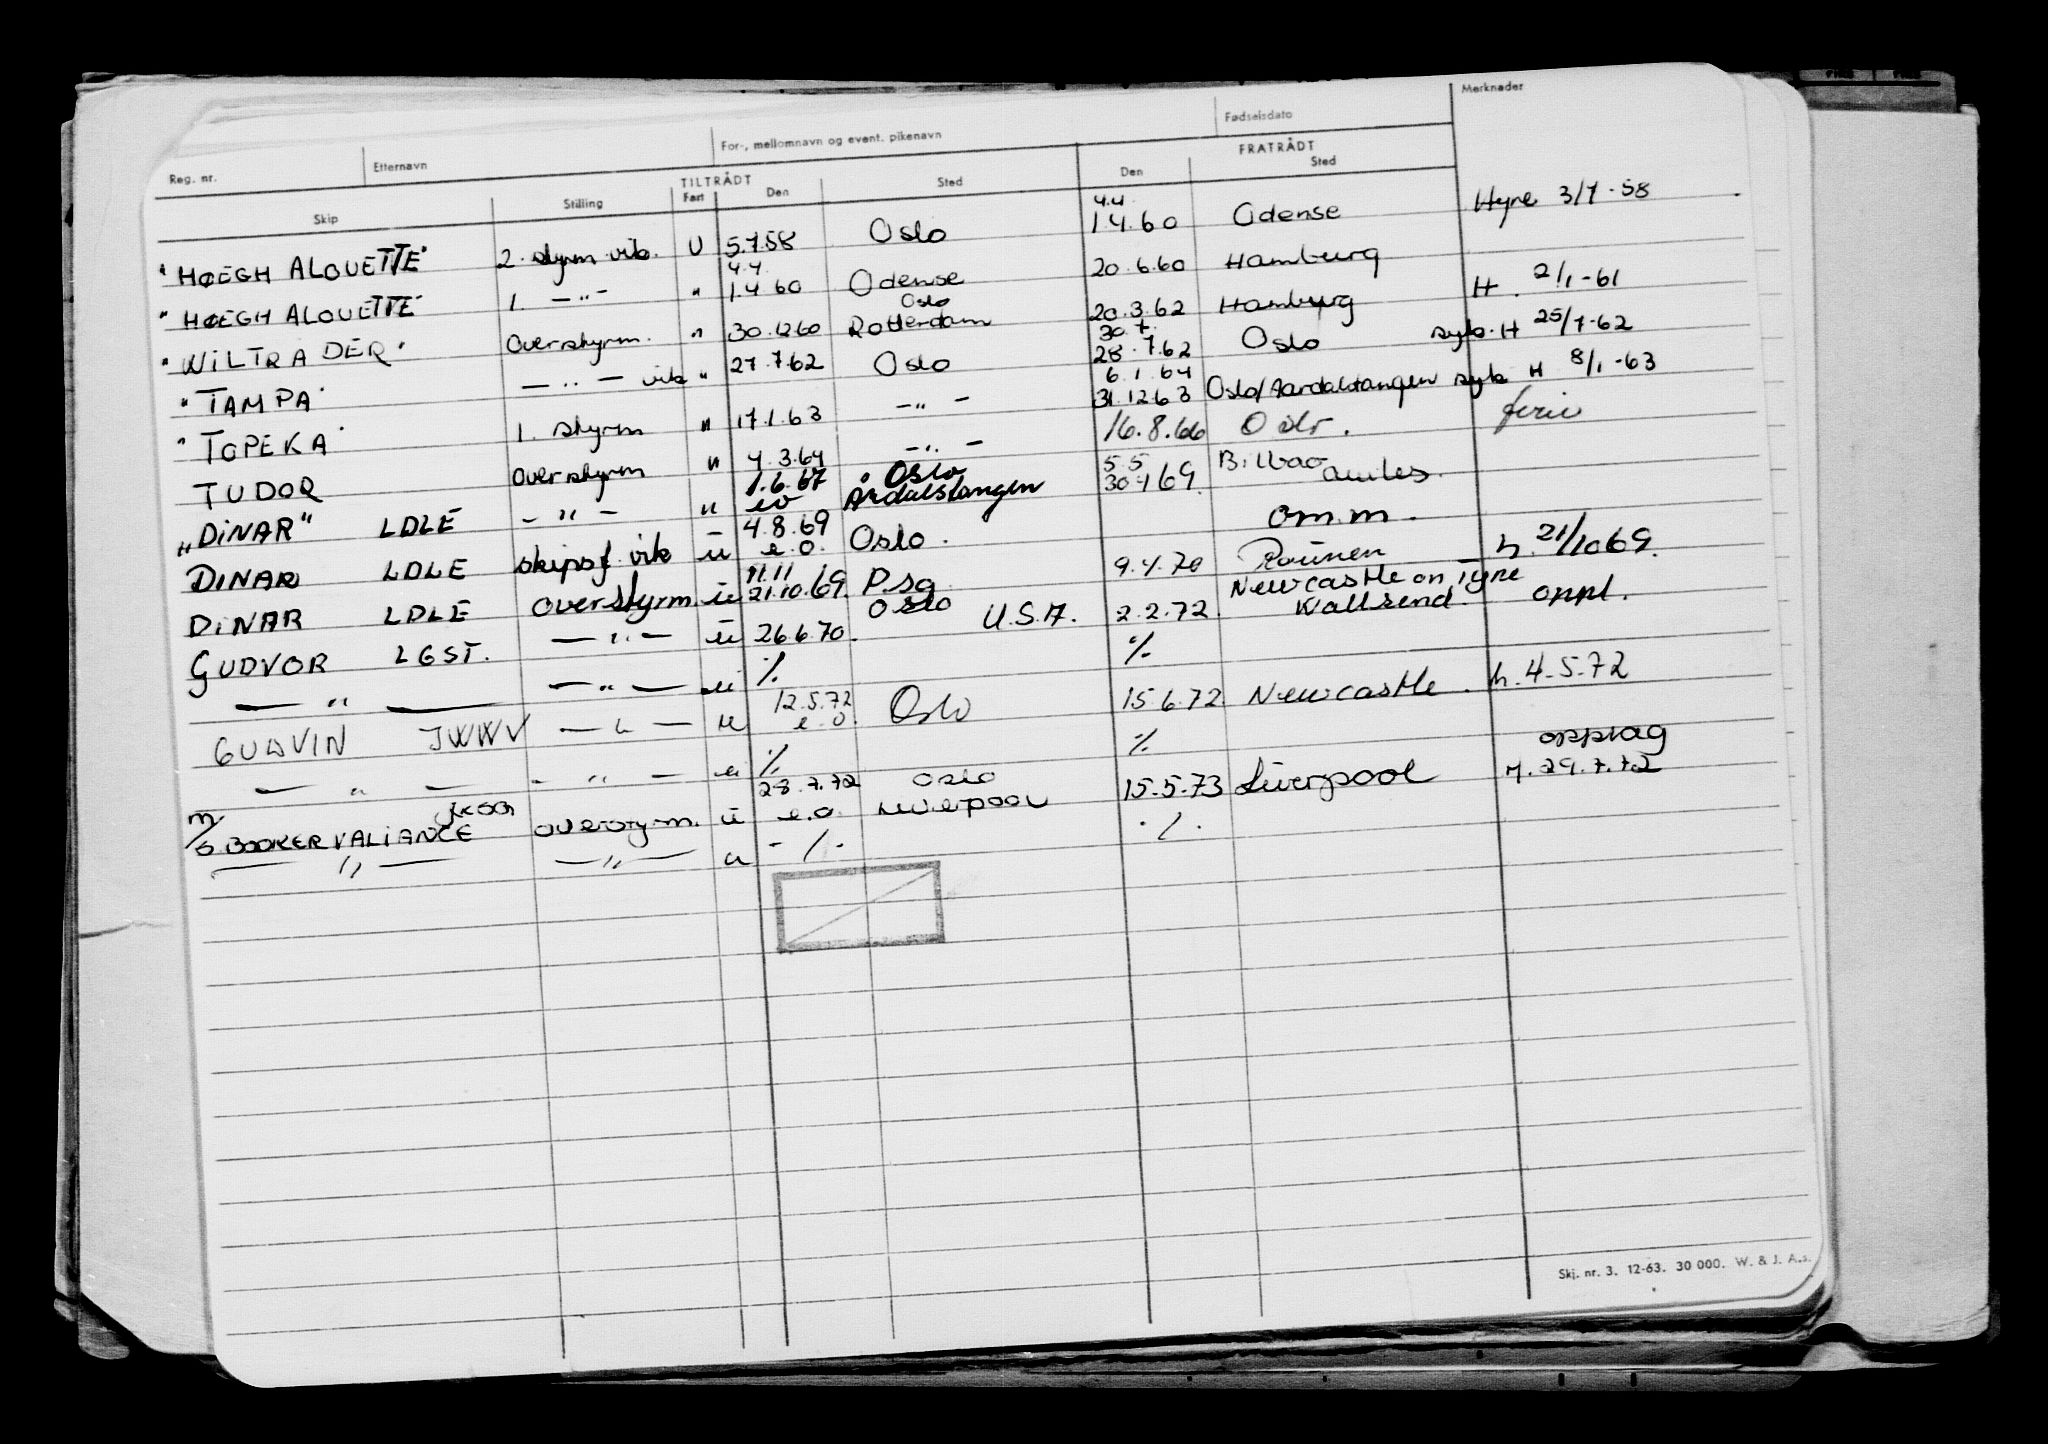 Reg. nr. Etternavn For-, mellomnavn og event. pikenavn Fødselsdato Merknader
TILTRÅDT FRATRÅDT
Skip Stilling Fart Den Sted Den Sted
"HØEGH ALOUETTE" 2. styrm vik. U 5.7.58 Oslo 4.4. 1.4.60 Odense Hyre 3/7-58
"HØEGH ALOUETTE" 1. —"— " 4.4. 1.4.60 Odense 20.6.60 Hamburg
"WILTRADER" Overstyrm. " 30.12.60 Oslo Rotterdam 20.3.62 Hamburg H. 2/1-61
"TAMPA" —"— vik " 27.7.62 Oslo 30.7. 28.7.62 Oslo syk. H 25/7-62
"TOPEKA" 1. styrm " 17.1.63 —"— 6.1.64 31.12.63 Oslo/Aardalstangen syk H 8/1-63
TUDOR Overstyrm " 4.3.64 —"— 16.8.66 Oslo. ferie
"DINAR" LDLE —"— " 1.6.67 eo Oslo Årdalstangen 5.5 30.4.69. Bilbao
DINAR LDLE skipsf. vik u 4.8.69 e.o. Oslo. om.m.
DINAR LDLE Overstyrm. u 11.11 21.10.69. P.sg Oslo 9.4.70 h. 21/10 69.
GUDVOR LGST. —"— u 26.6.70. U.S.A. 2.2.72. Newcastle on Tyne Wallsend. oppl.
—"— —"— u % %
GUDVIN JWWV —"— u 12.5.72 e.o. Oslo 15.6.72. Newcastle. h. 4.5.72
—"— —"— u % % opplag
m/s BOOKER VALIANCE overstyrm. u 28.7.72 e.o. Oslo Liverpool 15.5.73 Liverpool h. 29.7.72
—"— —"— u -/- ./.
Skj. nr. 3. 12-63. 30 000. W. & J. A.s.